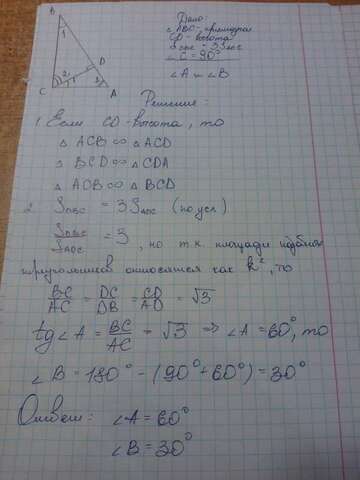 B
1
D
2
1
3
C
A
Дано:
△ ABC - прямоугол
CD - высота
S DBC = 3S ADC
∠ C = 90°
∠A и ∠B
Решение:
1. Если CD - высота, то
△ ACB ∞ △ ACD
△ BCD ∞ △ CDA
△ ACB ∞ △ BCD
2. S DBC = 3 S ADC (по усл)
S DBC / S ADC = 3, но т.к. площади подобных
треугольников относятся как k², то
BC / AC = DC / DB = CD / AD = √3
tg ∠ A = BC / AC = √3 ⇒ ∠ A = 60°, то
∠ B = 180° - (90° + 60°) = 30°
Ответ: ∠A = 60°
∠B = 30°